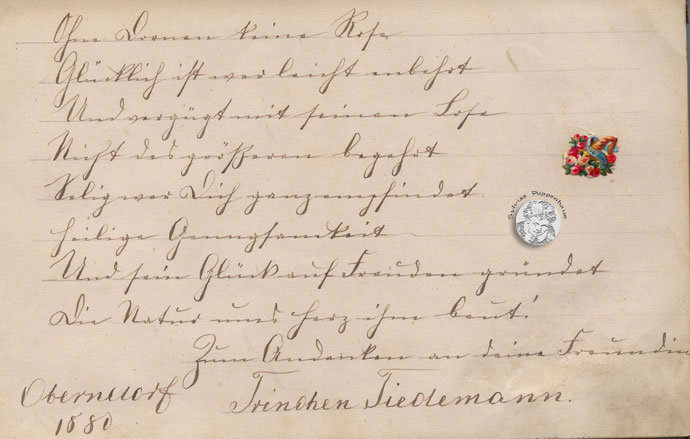 Ohne Dornen keine Rose
Glücklich ist wer leicht enbehrt
Und vergügt mit seinen Lose
Nicht des größeren begehrt
Selig wer Dich ganz empfindet
heilige Genugsamkeit
Und sein Glück auf Freuden gründet
Die Natur uns herz ihm beut!
Zum Andenken an deine Freundin
Oberndorf Trinchen Tiedemann.
1880
Sylvias Puppenhaus